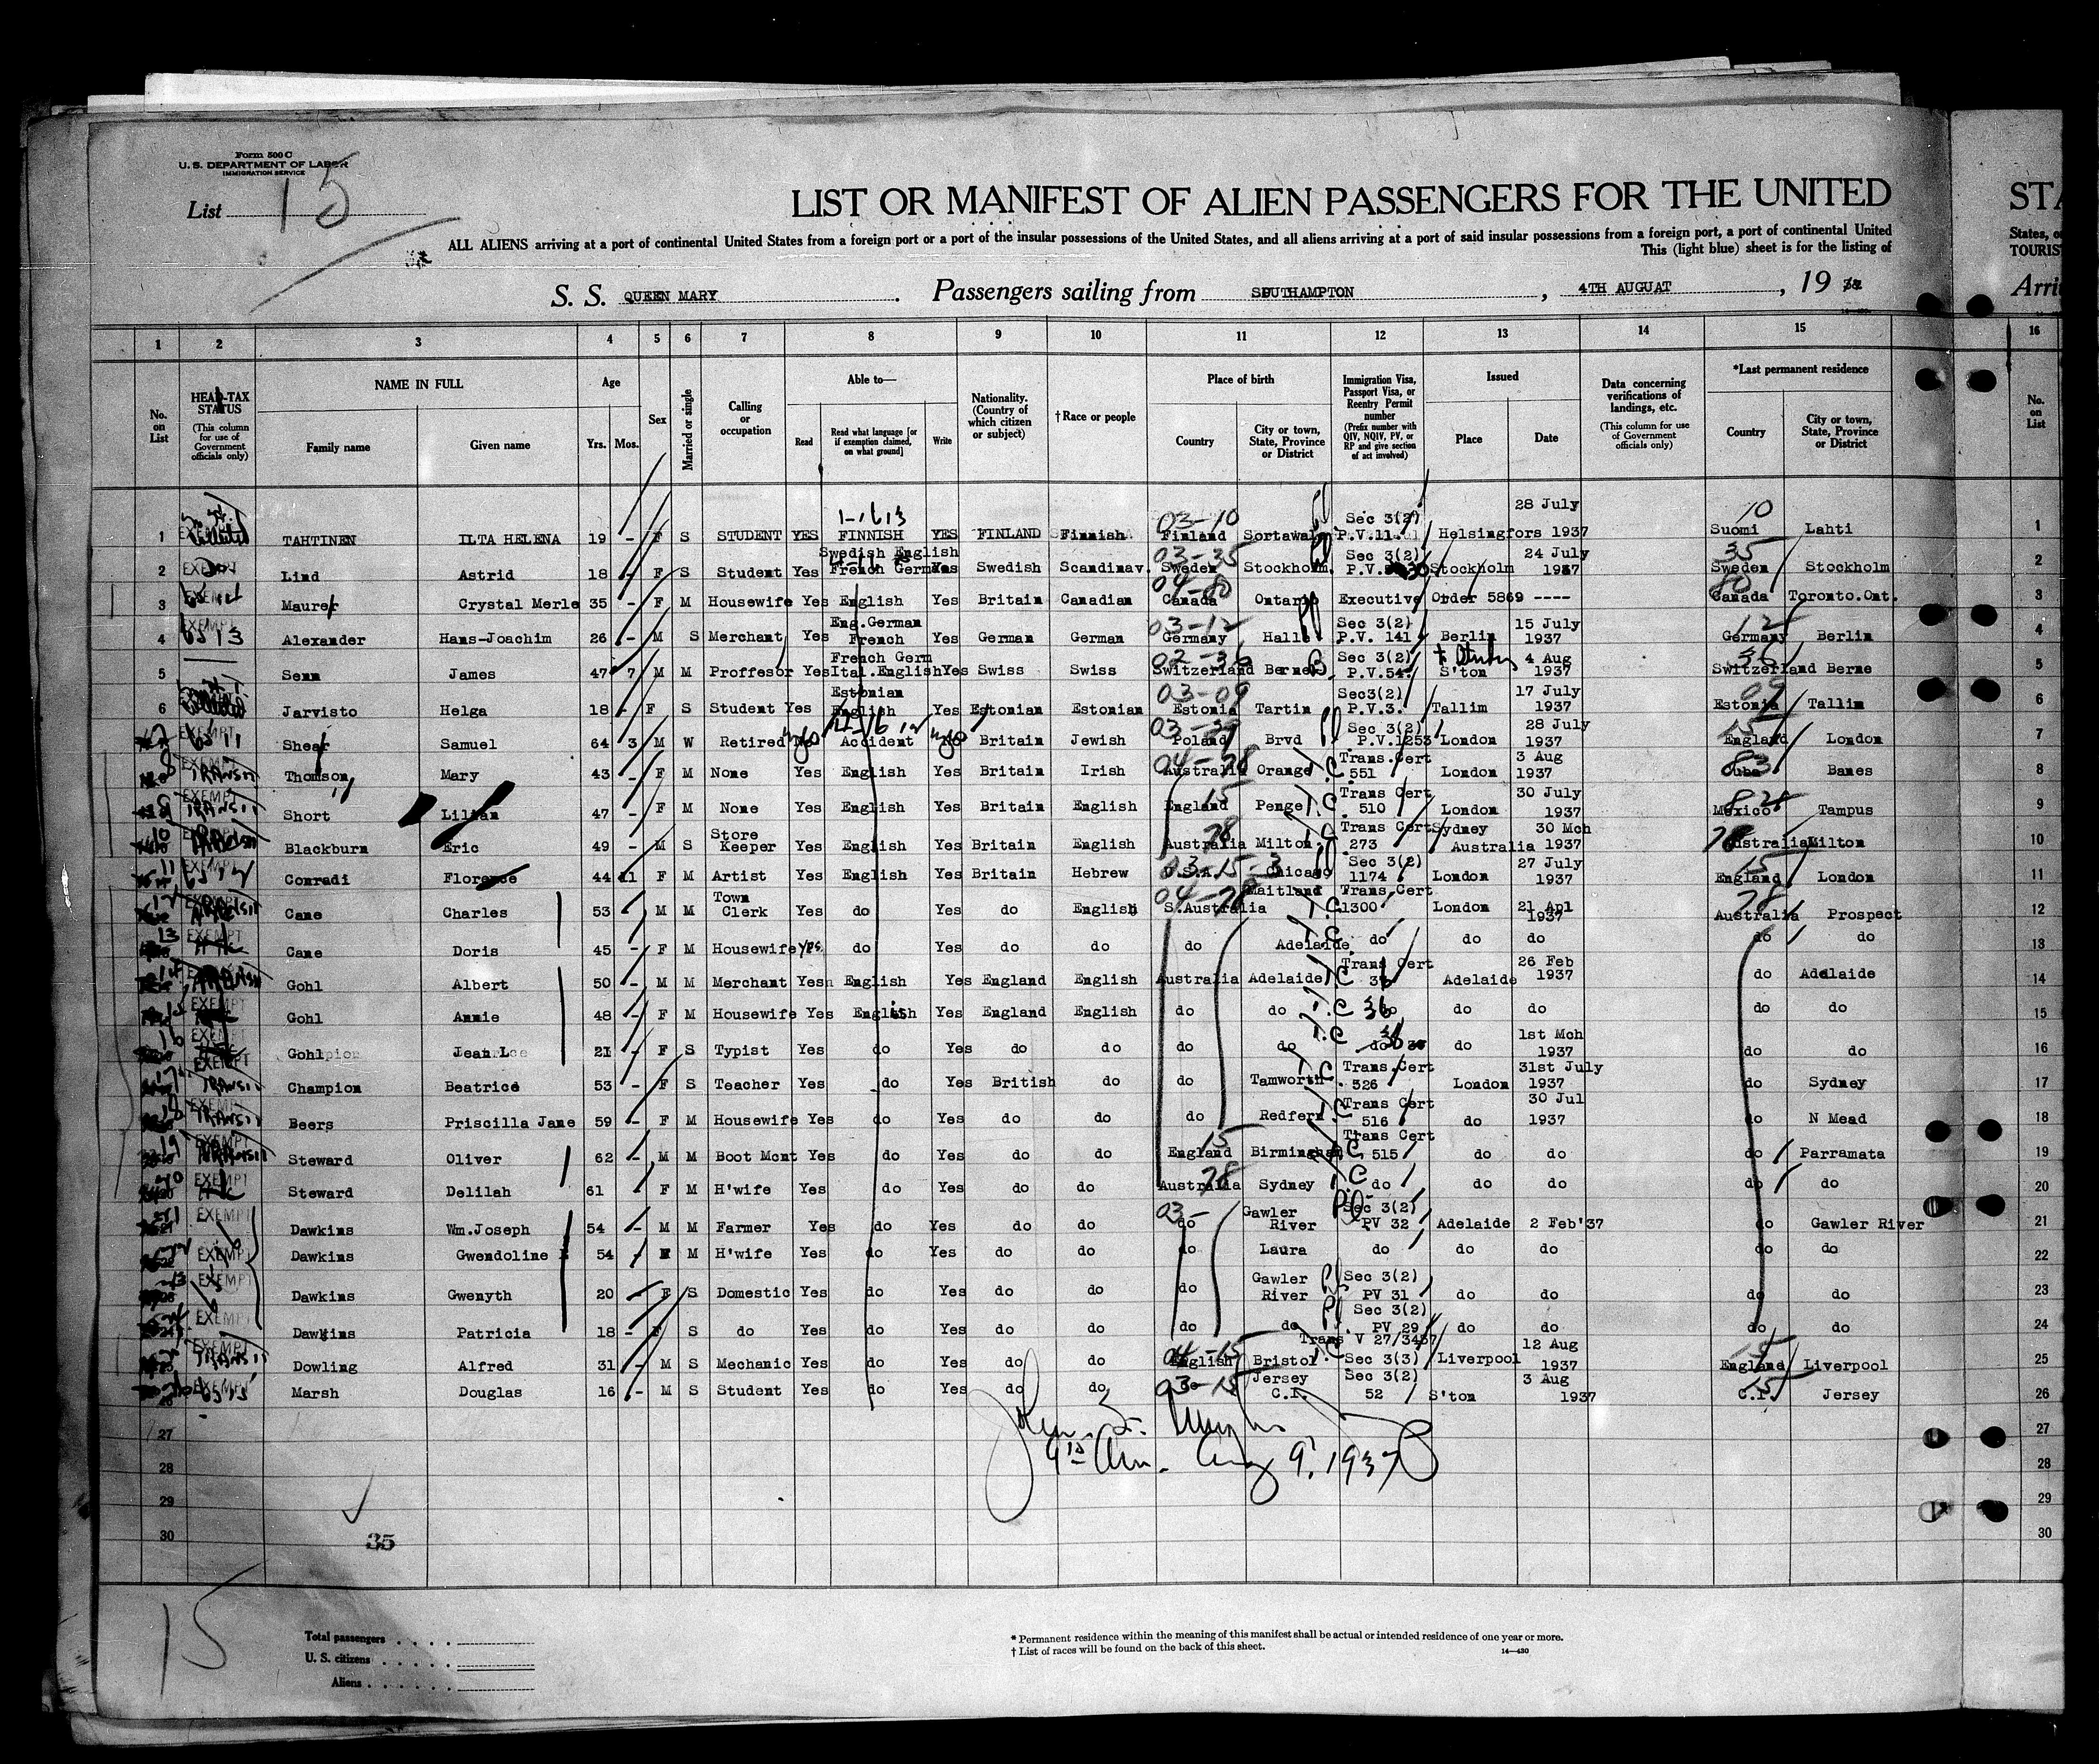 Form 500 C
U. S. DEPARTMENT OF LABOR
IMMIGRATION SERVICE
List 15
LIST OR MANIFEST OF ALIEN PASSENGERS FOR THE UNITED
STA
ALL ALIENS arriving at a port of continental United States from a foreign port or a port of the insular possessions of the United States, and all aliens arriving at a port of said insular possessions from a foreign port, a port of continental United
States, o
This (light blue) sheet is for the listing of
TOURIST
S. S. QUEEN MARY. Passengers sailing from SOUTHAMPTON, 4TH AUGUAT, 19
Arri
1 2 3 4 5 6 7 8 9 10 11 12 13 14 15 16
No. on List
HEAD-TAX STATUS (This column for use of Government officials only)
NAME IN FULL Family name Given name
Age Yrs. Mos.
Sex
Married or single
Calling or occupation
Able to— Read Read what language [or if exemption claimed, on what ground] Write
Nationality. (Country of which citizen or subject)
† Race or people
Place of birth Country City or town, State, Province or District
Immigration Visa, Passport Visa, or Reentry Permit number (Prefix number with QIV, NQIV, PV, or RP and give section of act involved)
Issued Place Date
Data concerning verifications of landings, etc. (This column for use of Government officials only)
*Last permanent residence Country City or town, State, Province or District
No. on List
1 TAHTINEN ILTA HELENA 19 - F S STUDENT YES FINNISH YES FINLAND Finnish 03-10 Finland Sortawala Sec 3(2) P.V.11 Helsingfors 28 July 1937 10 Suomi Lahti 1
2 EXEMPT Lind Astrid 18 - F S Student Yes Swedish English French German Yes Swedish Scandinav. 03-35 Sweden Stockholm. Sec 3(2) P.V. Stockholm 24 July 1937 35 Sweden Stockholm 2
3 EXEMPT Maurer Crystal Merle 35 - F M Housewife Yes English Yes Britain Canadian 04-80 Canada Ontario Executive Order 5869 ---- 80 Canada Toronto.Ont. 3
4 EXEMPT Alexander Hans-Joachim 26 - M S Merchant Yes Eng.German French Yes German German 03-12 Germany Halle Sec 3(2) P.V. 141 Berlin 15 July 1937 12 Germany Berlin 4
5 Senn James 47 7 M M Proffesor Yes French Germ Ital.English Yes Swiss Swiss 02-36 Switzerland Berne Sec 3(2) P.V.54 S'ton 4 Aug 1937 36 Switzerland Berne 5
6 Jarvisto Helga 18 - F S Student Yes Estonian English Yes Estonian Estonian 03-09 Estonia Tartin Sec3(2) P.V.3. Tallim 17 July 1937 09 Estonia Tallim 6
7 EXEMPT Shear Samuel 64 3 M W Retired No Accident Britain Jewish 03- Poland Brvd Sec 3(2) P.V.1253 London 28 July 1937 15 England London 7
8 EXEMPT TRANSIT Thomson Mary 43 - F M None Yes English Yes Britain Irish 04-78 Australia Orange T.C Trans.Cert 551 London 3 Aug 1937 83 Cuba Banes 8
9 EXEMPT TRANSIT Short Lilian 47 - F M None Yes English Yes Britain English 15 England Penge T.C Trans Cert 510 London 30 July 1937 82 Mexico Tampus 9
10 EXEMPT Blackburn Eric 49 - M S Store Keeper Yes English Yes Britain English 78 Australia Milton. Trans Cert 273 Sydney Australia 30 Mch 1937 78 Australia Milton 10
11 EXEMPT Conradi Florence 44 11 F M Artist Yes English Yes Britain Hebrew 03-15-3 U.S.A. Chicago Sec 3(2) 1174 London 27 July 1937 15 England London 11
12 EXEMPT Cane Charles 53 M M Town Clerk Yes do Yes do English 04-78 S.Australia Maitland T.C Trans.Cert 1300 London 21 Apl 1937 78 Australia Prospect 12
13 EXEMPT Cane Doris 45 - F M Housewife yes do Yes do do do Adelaide T.C do do do do do 13
14 Gohl Albert 50 - M M Merchant Yes English Yes England English Australia Adelaide T.C Trans Cert 36 Adelaide 26 Feb 1937 do Adelaide 14
15 EXEMPT Gohl Annie 48 - F M Housewife Yes English Yes England English do do T.C 36 do do do do 15
16 EXEMPT Gohl Jean 21 - F S Typist Yes do Yes do do do do T.C 36 do 1st Mch 1937 do do 16
17 EXEMPT TRANSIT Champion Beatrice 53 - F S Teacher Yes do Yes British do do Tamworth T.C Trans.Cert 526 London 31st July 1937 do Sydney 17
18 EXEMPT TRANSIT Beers Priscilla Jane 59 - F M Housewife Yes do Yes do do do Redfern T.C Trans Cert 516 do 30 Jul 1937 do N Mead 18
19 EXEMPT TRANSIT Steward Oliver 62 - M M Boot Mcnt Yes do Yes do do 15 England Birmingham T.C Trans Cert 515 do do do Parramata 19
20 EXEMPT Steward Delilah 61 - F M H'wife Yes do Yes do do 78 Australia Sydney T.C do do do do do 20
21 EXEMPT Dawkins Wm.Joseph 54 - M M Farmer Yes do Yes do do 03- do Gawler River Sec 3(2) PV 32 Adelaide 2 Feb'37 do Gawler River 21
22 EXEMPT Dawkins Gwendoline 54 - F M H'wife Yes do Yes do do do Laura do do do do do 22
23 EXEMPT Dawkins Gwenyth 20 - F S Domestic Yes do Yes do do do Gawler River Sec 3(2) PV 31 do do do do 23
24 EXEMPT Dawkins Patricia 18 - F S do Yes do Yes do do do do Sec 3(2) PV 29 do do do do 24
25 EXEMPT TRANSIT Dowling Alfred 31 - M S Mechanic Yes do Yes do do 04-15 English Bristol T.C Trans V 27/3457 Sec 3(3) Liverpool 12 Aug 1937 15 England Liverpool 25
26 EXEMPT Marsh Douglas 16 - M S Student Yes do Yes do do 03-15 Jersey C.I. Sec 3(2) 52 S'ton 3 Aug 1937 15 C.I. Jersey 26
27 27
Aug 9, 1937
28 28
29 29
30 35 30
15
Total passengers
U. S. citizens
Aliens
* Permanent residence within the meaning of this manifest shall be actual or intended residence of one year or more.
† List of races will be found on the back of this sheet.
14—430